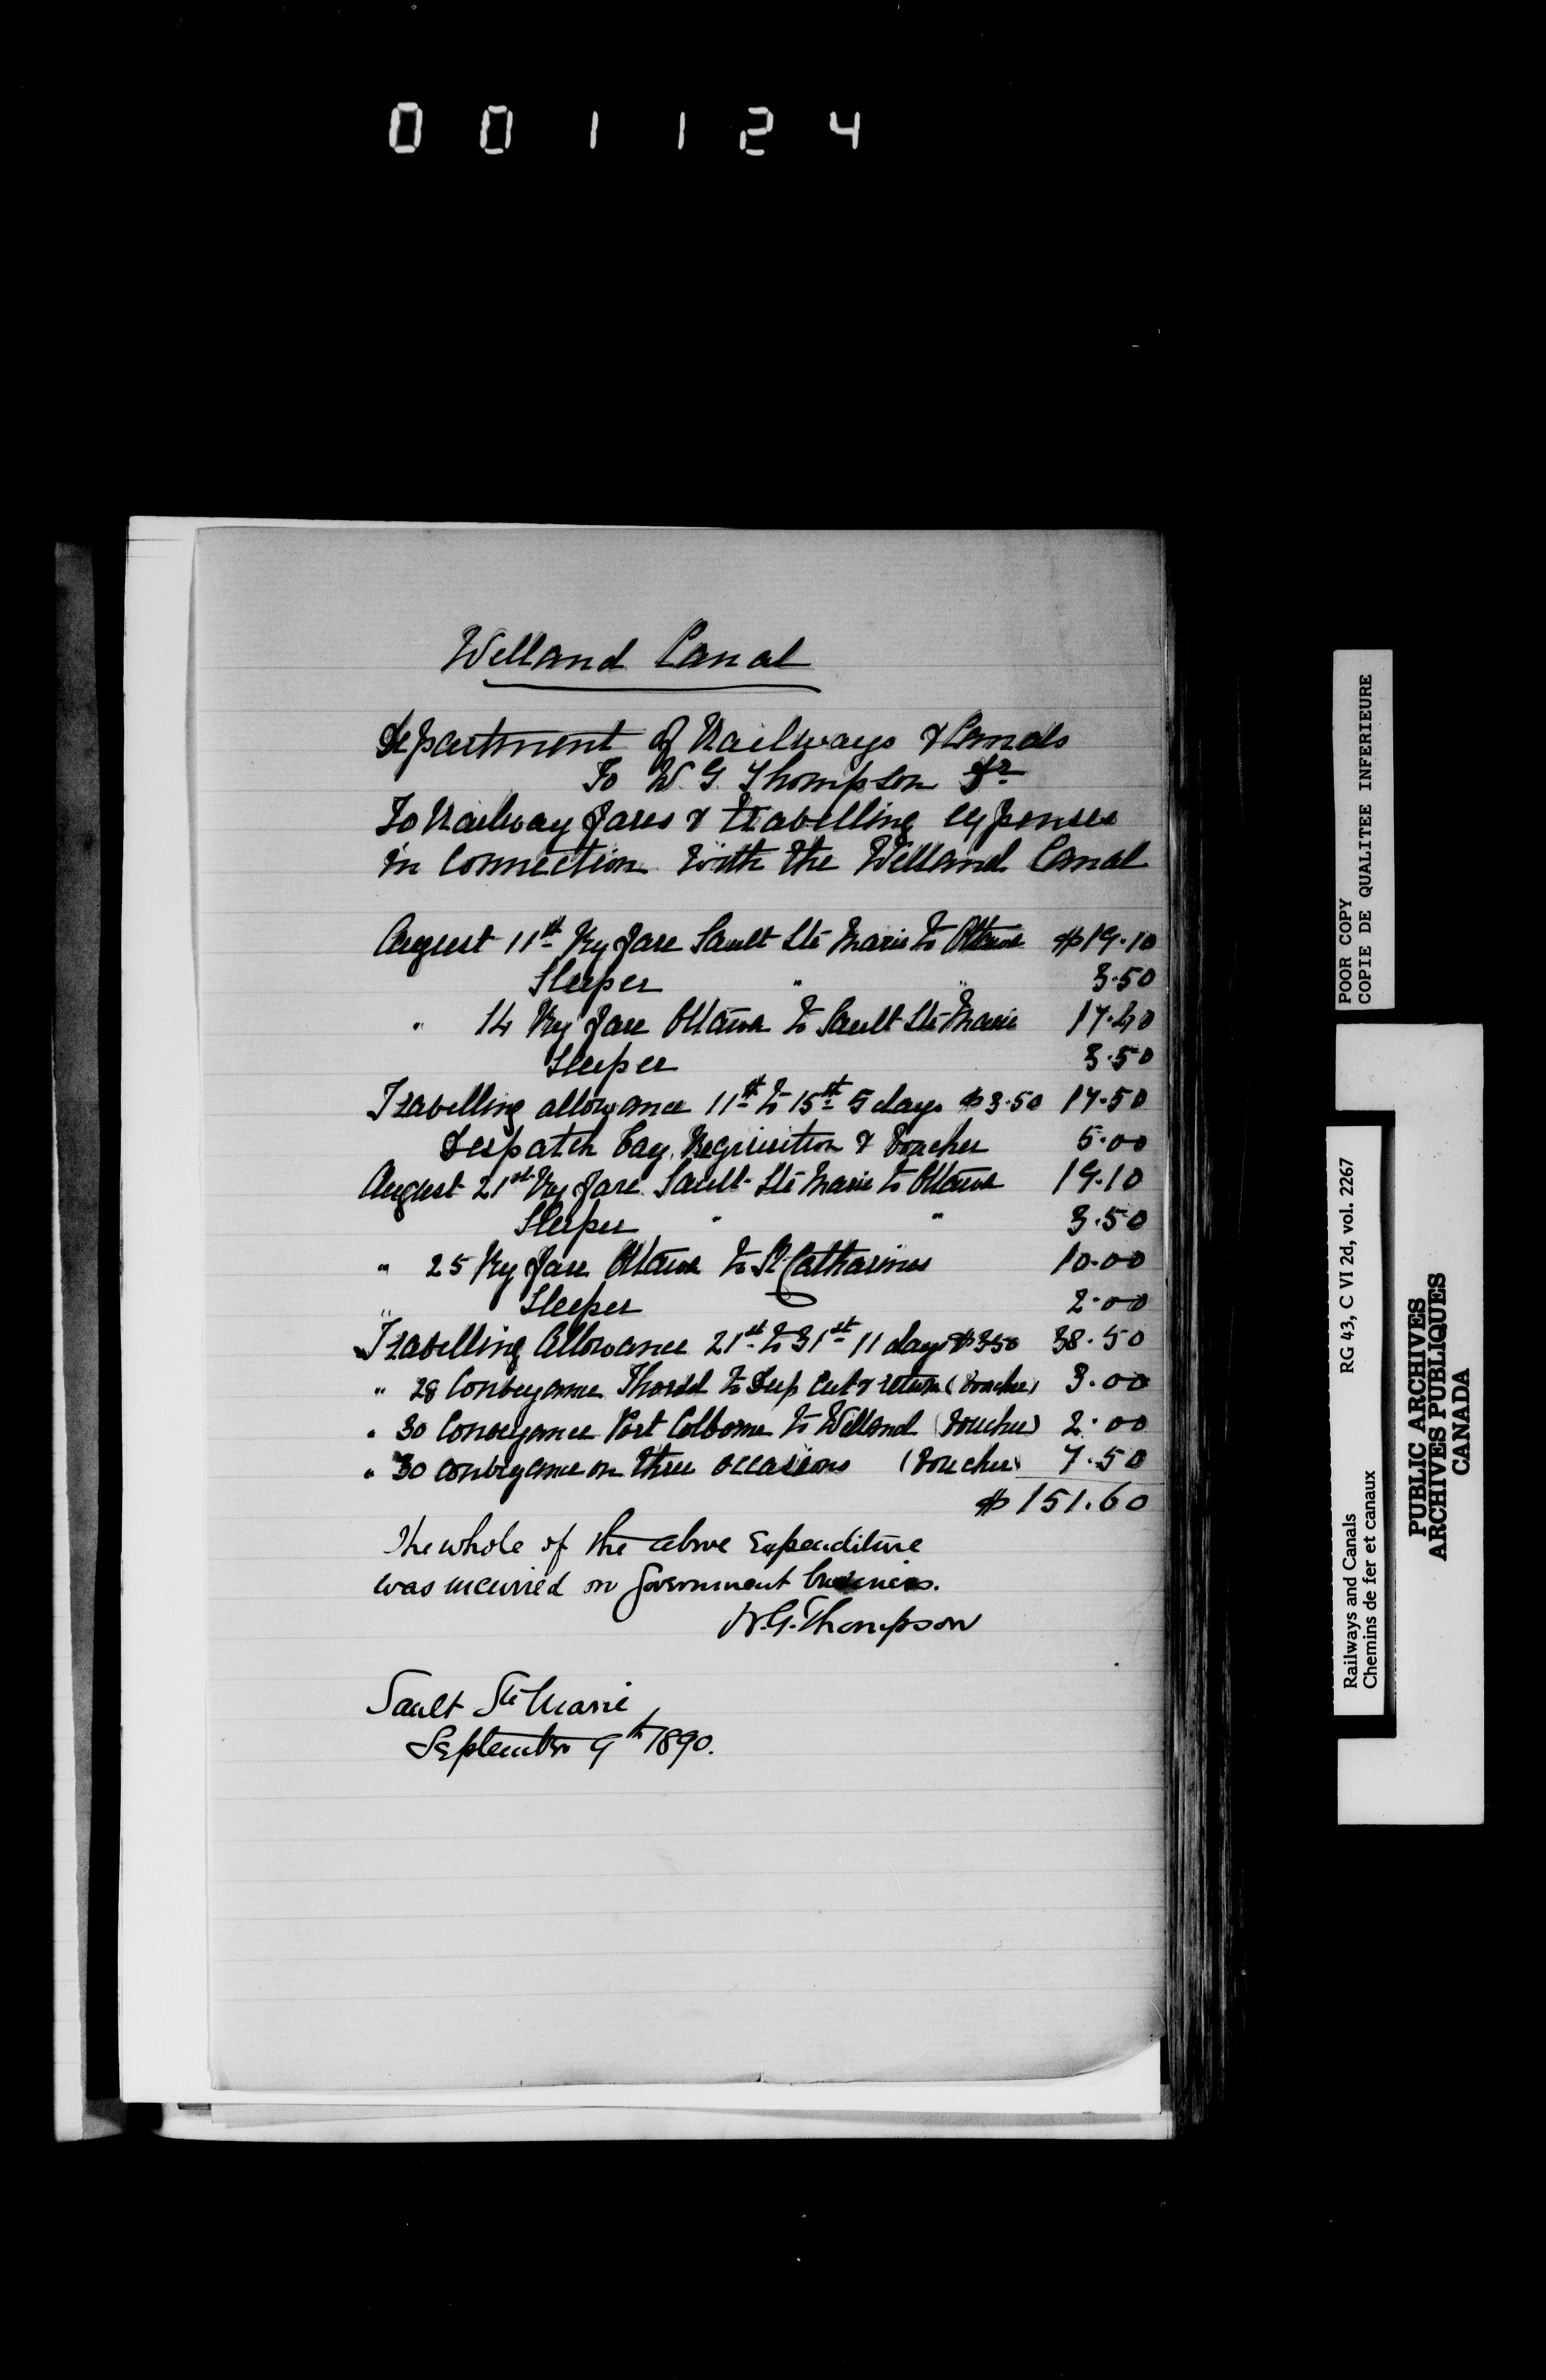 001124
Welland Canal
Department of Railways & Canals
To W. G. Thompson Dr
To Railway fares & travelling expenses
in connection with the Welland Canal
August 11th Ry fare Sault Ste Marie to Ottawa $19.10
Sleeper " " 3.50
" 14 Ry fare Ottawa to Sault Ste Marie 17.40
Sleeper 3.50
Travelling allowance 11th to 15th 5 days $3.50 17.50
Despatch bag, Requisition & Voucher 5.00
August 21st Ry fare Sault Ste Marie to Ottawa 19.10
Sleeper " " 3.50
" 25 Ry fare Ottawa to St Catharines 10.00
" Sleeper 2.00
Travelling Allowance 21st to 31st 11 days $3.50 38.50
" 28 Conveyance Thorold to Deep Cut & return (Voucher) 3.00
" 30 Conveyance Port Colborne to Welland (Voucher) 2.00
" 30 conveyance on three occasions (Voucher) 7.50
$151.60
The whole of the above Expenditure
was incurred on Government business.
W.G. Thompson
Sault Ste Marie
September 9th 1890.
POOR COPY
COPIE DE QUALITEE INFERIEURE
Railways and Canals RG 43, C VI 2d, vol. 2267
Chemins de fer et canaux
PUBLIC ARCHIVES
ARCHIVES PUBLIQUES
CANADA